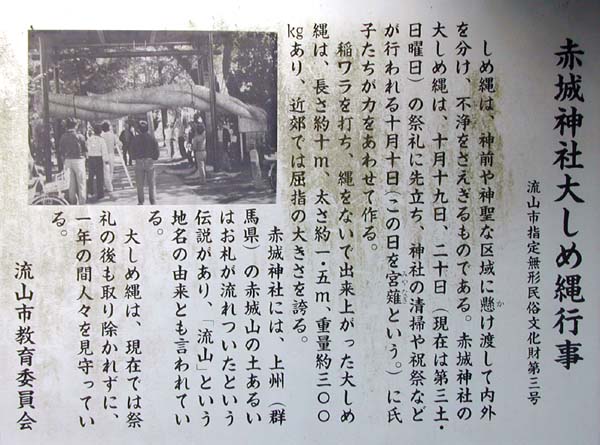 赤城神社大しめ縄行事
流山市指定無形民俗文化財第三号
しめ縄は、神前や神聖な区域に懸け渡して内外
を分け、不浄をさえぎるものである。赤城神社の
大しめ縄は、十月十九日、二十日（現在は第三土・
日曜日）の祭礼に先立ち、神社の清掃や祝祭など
が行われる十月十日（この日を宮薙という。）に氏
子たちが力をあわせて作る。
稲ワラを打ち、縄をないで出来上がった大しめ
縄は、長さ約十m、太さ約一・五m、重量約三〇〇
kgあり、近郊では屈指の大きさを誇る。
赤城神社には、上州（群
馬県）の赤城山の土あるい
はお札が流れついたという
伝説があり、「流山」という
地名の由来とも言われてい
る。
大しめ縄は、現在では祭
礼の後も取り除かれずに、
一年の間人々を見守ってい
る。
流山市教育委員会